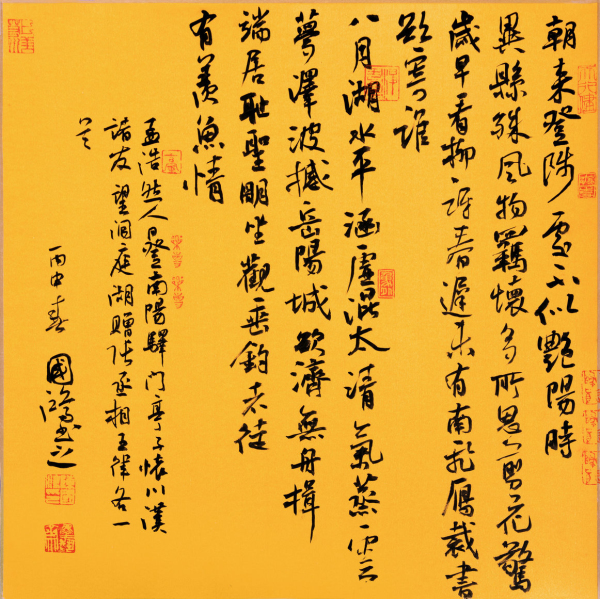 朝來登陟處不似艷陽時
異縣殊風物羈懷多所思剪花驚
歲早看柳訝春遲未有南飛雁裁書
欲寄誰
八月湖水平涵虛混太清氣蒸雲
夢澤波撼岳陽城欲濟無舟楫
端居耻聖明坐觀垂釣者徒
有羨魚情
孟浩然人日登南陽驛門亭子懷川漢
諸友望洞庭湖贈張丞相五律各一
首
丙申春
國鴻書之